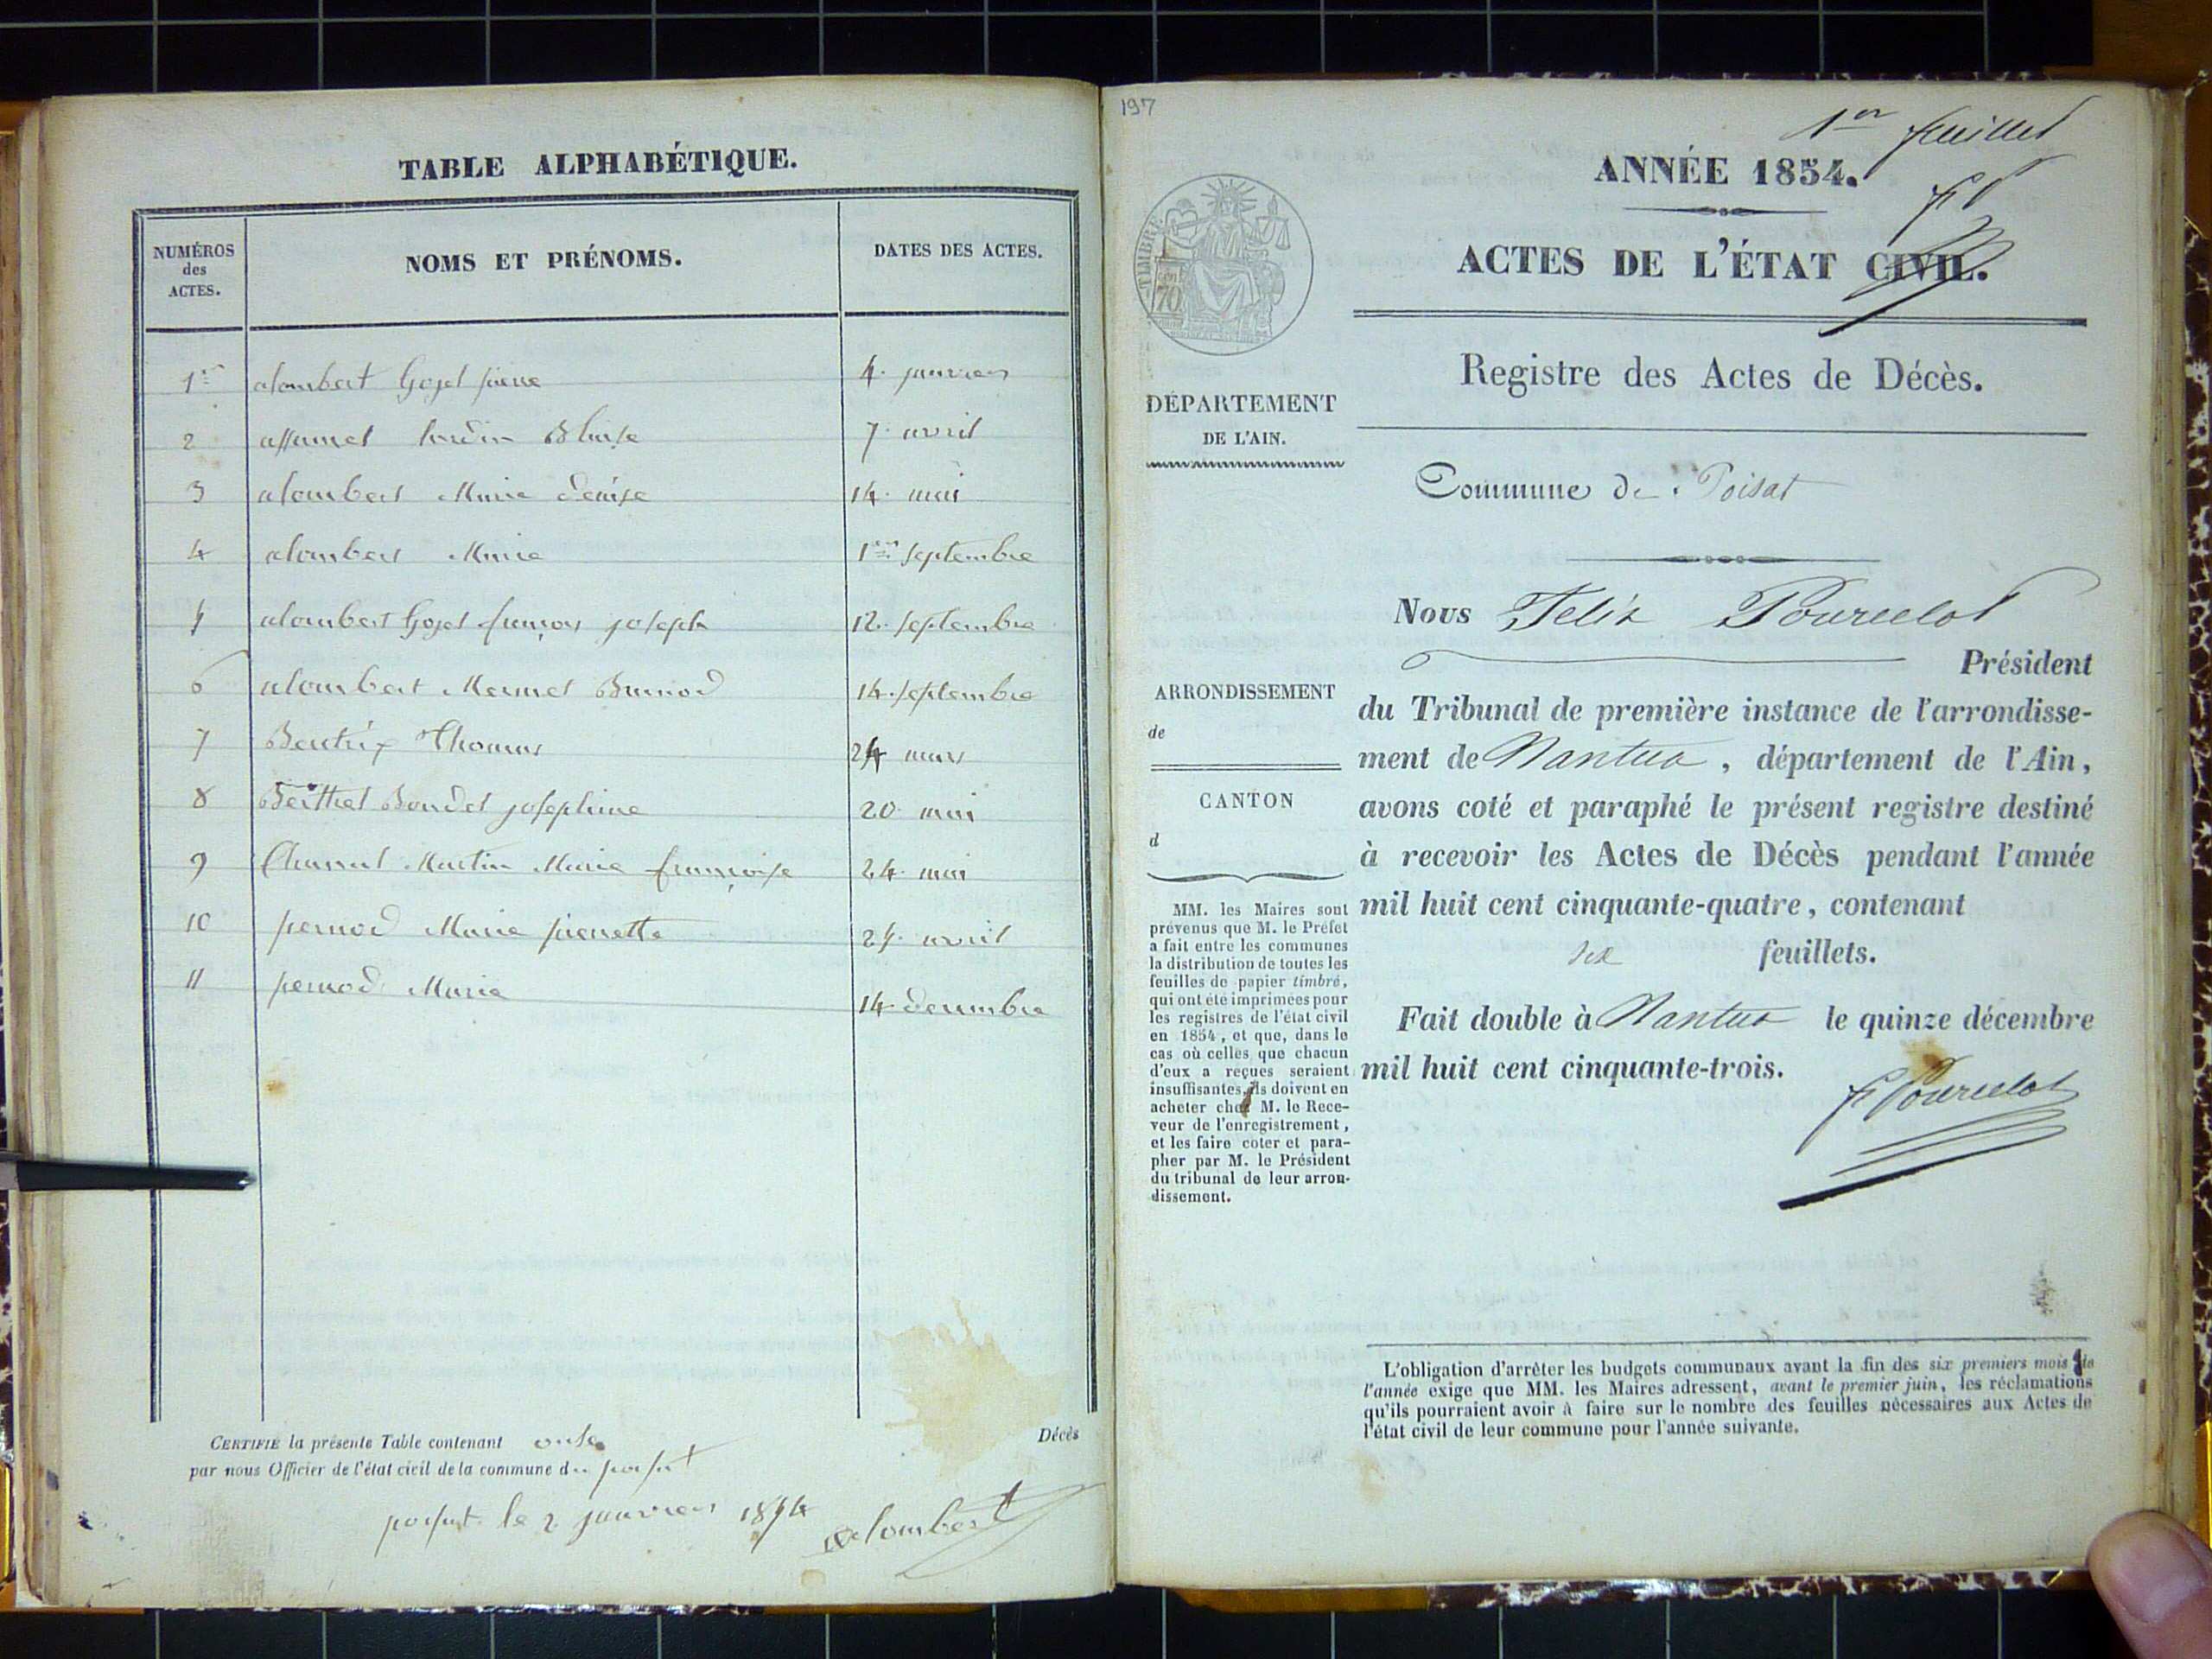 TABLE ALPHABÉTIQUE.
NUMÉROS des ACTES. NOMS ET PRÉNOMS. DATES DES ACTES.
1er alombert Gojet pierre 4. janvier
2 assumel Blaise 7. avril
3 alombert Marie denise 14. mai
4 alombert Marie 1er septembre
5 alombert Gojet françois joseph 12. septembre
6 alombert Mermet Burnod 14. septembre
7 Beatrix Thomas 24 mars
8 Berthet Bondet josephine 20. mai
9 Martin Marie françoise 24. mai
10 pernod Marie pierrette 25. avril
11 pernod Marie 14. decembre
CERTIFIÉ la présente Table contenant onse Décès
par nous Officier de l'état civil de la commune de poisat
poisat le 2 janvier 1854 alombert
197
1er feuillet
ANNÉE 1854.
f P
ACTES DE L'ÉTAT CIVIL.
TIMBRE
70
Registre des Actes de Décès.
DÉPARTEMENT
DE L'AIN.
Commune de Poisat
ARRONDISSEMENT
de
CANTON
d
MM. les Maires sont
prévenus que M. le Préfet
a fait entre les communes
la distribution de toutes les
feuilles de papier timbré,
qui ont été imprimées pour
les registres de l'état civil
en 1854, et que, dans le
cas où celles que chacun
d'eux a reçues seraient
insuffisantes, ils doivent en
acheter chez M. le Rece-
veur de l'enregistrement,
et les faire coter et para-
pher par M. le Président
du tribunal de leur arron-
dissement.
Nous Felix Pourcelot
Président
du Tribunal de première instance de l'arrondisse-
ment de Nantua, département de l'Ain,
avons coté et paraphé le présent registre destiné
à recevoir les Actes de Décès pendant l'année
mil huit cent cinquante-quatre, contenant
six feuillets.
Fait double à Nantua le quinze décembre
mil huit cent cinquante-trois.
f Pourcelot
L'obligation d'arrêter les budgets communaux avant la fin des six premiers mois de
l'année exige que MM. les Maires adressent, avant le premier juin, les réclamations
qu'ils pourraient avoir à faire sur le nombre des feuilles nécessaires aux Actes de
l'état civil de leur commune pour l'année suivante.